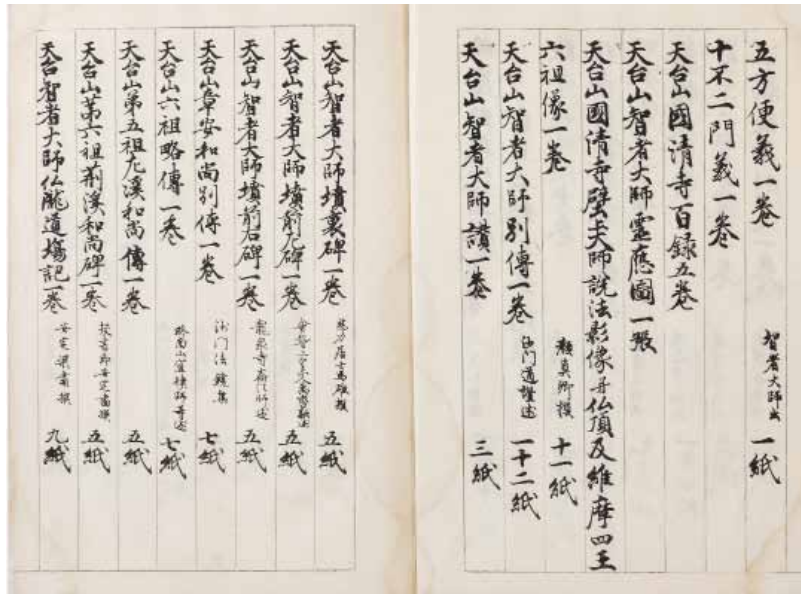 五方便義一卷 智者大師出 一紙
十不二門義一卷
天台山國清寺百録五卷
天台山智者大師靈應圖一張
天台山國清寺壁上大師說法影像并仏頂及維摩四王
六祖像一卷 顏真卿撰 十一紙
天台山智者大師別傳一卷 沙門道澄述 一十二紙
天台山智者大師讃一卷 三紙
天台山智者大師墳裏碑一卷 五紙
天台山智者大師墳前左碑一卷 五紙
天台山智者大師墳前右碑一卷 五紙
天台山章安和尚別傳一卷 沙門法鏡集 七紙
天台山六祖略傳一卷 七紙
天台山第五祖左溪和尚傳一卷 五紙
天台山第六祖荊溪和尚碑一卷 五紙
天台智者大師仏隴道塲記一卷 安定梁肅撰 九紙